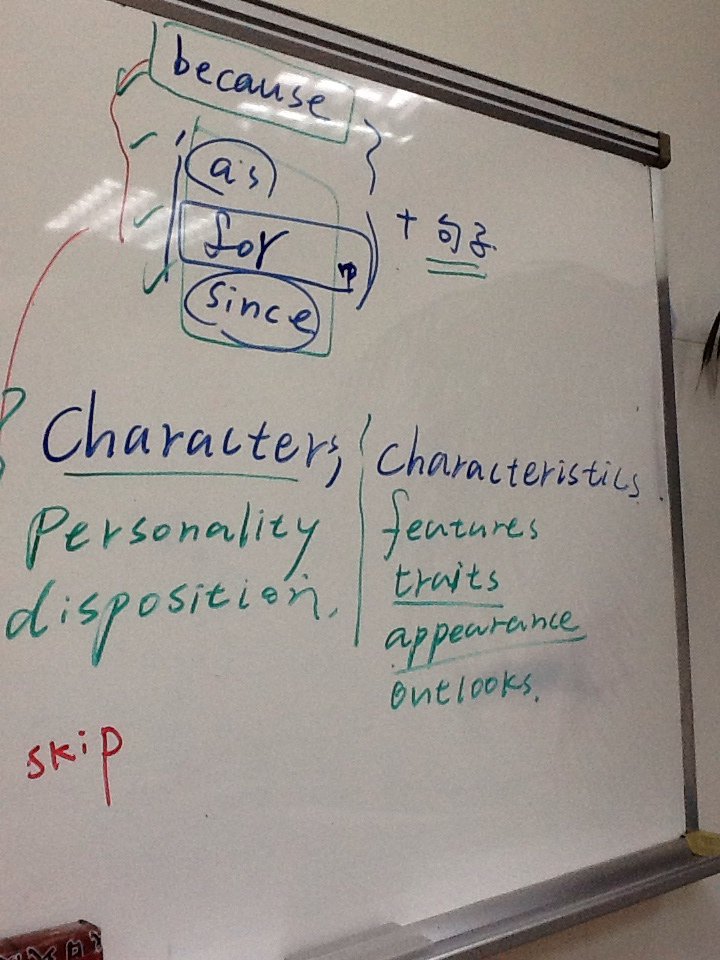 because
as
for
+ 句子
since
Character,
characteristics.
Personality
features
disposition.
traits
appearance
outlooks.
skip